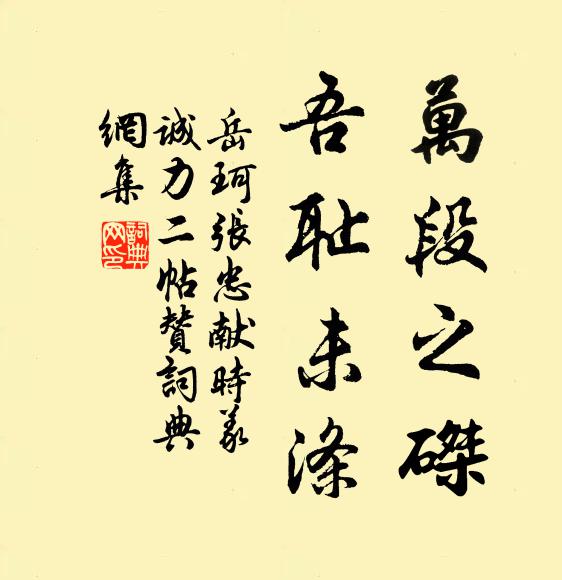 萬段之磔
吾耻未滌
岳珂張忠献時義
诚力二帖賛詞典
網集
詞典网印